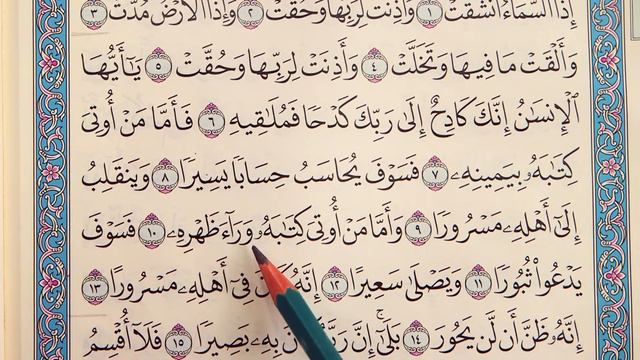 إِذَا ٱلسَّمَآءُ ٱنشَقَّتۡ ١ وَأَذِنَتۡ لِرَبِّهَا وَحُقَّتۡ ٢ وَإِذَا ٱلۡأَرۡضُ مُدَّتۡ ٣
وَأَلۡقَتۡ مَا فِيهَا وَتَخَلَّتۡ ٤ وَأَذِنَتۡ لِرَبِّهَا وَحُقَّتۡ ٥ يَٰٓأَيُّهَا
ٱلۡإِنسَٰنُ إِنَّكَ كَادِحٌ إِلَىٰ رَبِّكَ كَدۡحٗا فَمُلَٰقِيهِ ٦ فَأَمَّا مَنۡ أُوتِيَ
كِتَٰبَهُۥ بِيَمِينِهِۦ ٧ فَسَوۡفَ يُحَاسَبُ حِسَابٗا يَسِيرٗا ٨ وَيَنقَلِبُ
إِلَىٰٓ أَهۡلِهِۦ مَسۡرُورٗا ٩ وَأَمَّا مَنۡ أُوتِيَ كِتَٰبَهُۥ وَرَآءَ ظَهۡرِهِۦ ١٠ فَسَوۡفَ
يَدۡعُواْ ثُبُورٗا ١١ وَيَصۡلَىٰ سَعِيرًا ١٢ إِنَّهُۥ فِيٓ أَهۡلِهِۦ مَسۡرُورًا ١٣
إِنَّهُۥ ظَنَّ أَن لَّن يَحُورَ ١٤ بَلَىٰٓۚ إِنَّ بِهِۦ بَصِيرٗا ١٥ فَلَآ أُقۡسِمُ